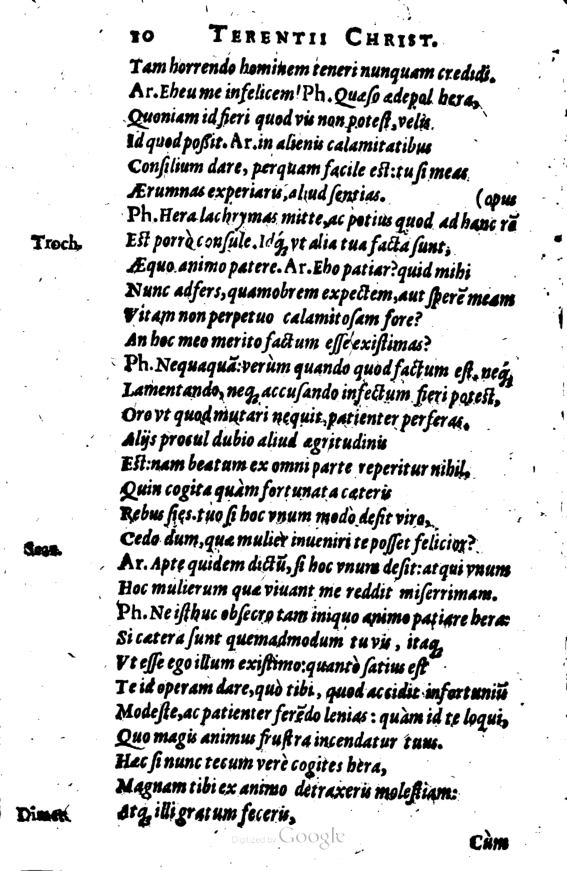 10 TERENTII CHRIST.
Tam horrendo hominem teneri nunquam credidi.
Ar. Eheu me infelicem! Ph. Quæso ædepol hera,
Quoniam id fieri quod vis non potest, velis
Id quod poßit. Ar. in alienis calamitatibus
Consilium dare, perquam facile est: tu si meas
Ærumnas experiaris, aliud sentias. (opus
Ph. Hera lachrymas mitte, ac potius quod ad hanc rē
Troch. Est porrò consule. Idq́, vt alia tua facta sunt,
Æquo animo patere. Ar. Eho patiar? quid mihi
Nunc adfers, quamobrem expectem, aut sperē meam
Vitam non perpetuo calamitosam fore?
An hoc meo merito factum esse existimas?
Ph. Nequaquā: verùm quando quod factum est, neq́,
Lamentando, neq, accusando infectum fieri potest,
Oro vt quod mutari nequit, patienter perferas.
Alijs procul dubio aliud ægritudinis
Est: nam beatum ex omni parte reperitur nihil.
Quin cogita quàm fortunata cæteris
Rebus sies. tuo si hoc vnum modò desit viro,
Cedo dum, quæ mulier inueniri te posset felicior?
Ar. Aptè quidem dictū, si hoc vnum desit: atqui vnum
Hoc mulierum quæ viuant me reddit miserrimam.
Ph. Ne isthuc obsecro tam iniquo animo patiare hera:
Si cætera sunt quemadmodum tu vis, itaq,
Vt esse ego illum existimo: quantò satius est
Te id operam dare, quò tibi, quod accidit infortuniū
Modeste, ac patienter ferēdo lenias: quàm id te loqui,
Quo magis animus frustra incendatur tuus.
Hæc si nunc tecum verè cogites hera,
Magnam tibi ex animo detraxeris molestiam:
Dimet. Atq, illi gratum feceris,
Digitized by Google
Cùm